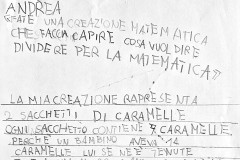 ANDREA
CREATE UNA CREAZIONE MATEMATICA
CHE FACCA CAPIRE COSA VUOL DIRE
DIVIDERE PER LA MATEMATICA"
LA MIA CREAZIONE RAPRESENTA
2 SACCHETTI DI CARAMELLE
OGNI SACCHETTO CONTIENE 7 CARAMELLE
PERCHÉ UN BAMBINO AVEVA 14
CARAMELLE LUI SE NE È TENUTE